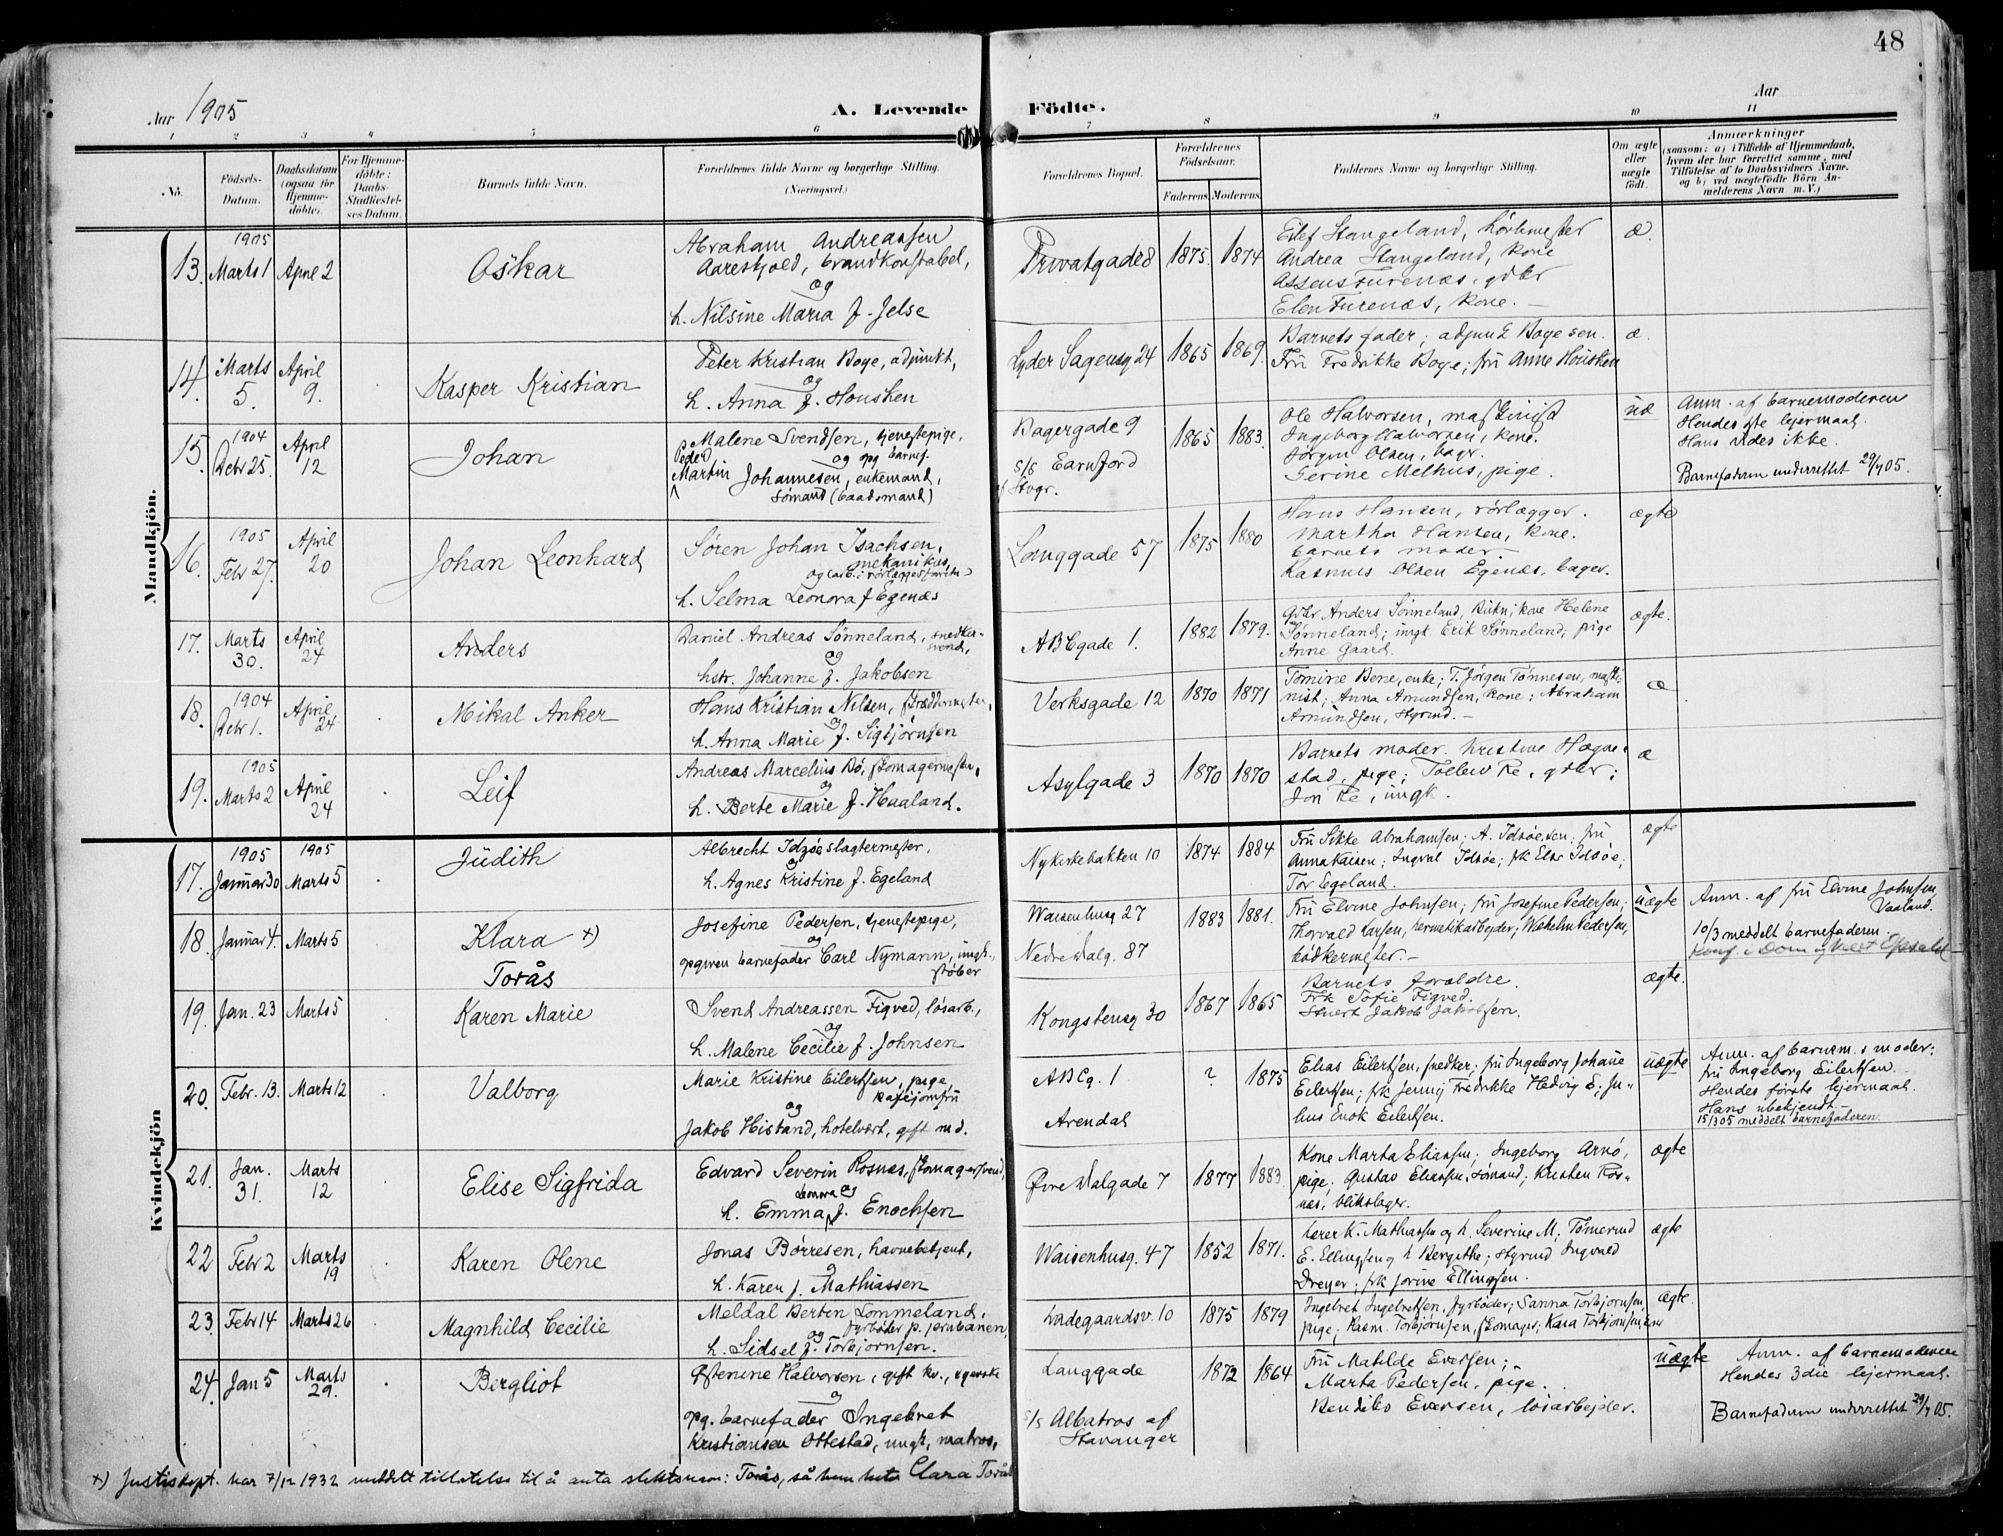 48
Aar 1905
A. Levende Födte.
Aar
1 2 3 4 5 6 7 8 9 10 11
No.
Födsels-Datum.
Daabsdatum (ogsaa for Hjemmedöbte)
For Hjemmedöbte: Daabs-Stadfæstelses Datum.
Barnets fulde Navn.
Forældrenes fulde Navne og borgerlige Stilling. (Næringsvei.)
Forældrenes Bopæl.
Forældrenes Födselsaar.
Faderens. Moderens.
Faddernes Navne og borgerlige Stilling.
Om ægte eller uægte födt.
Anmærkninger
(saasom: a) i Tilfælde af Hjemmedaab, hvem der har forrettet samme, med Tilföielse af to Daabsvidners Navne. og b) ved uægtefödte Börn Anmelderens Navn m. V.)
Mandkjön.
13. 1905 Marts 1 April 2 Oskar
Abraham Andreassen
Aareskjold, brandkonstabel,
og
h. Nilsine Maria f. Jelse
Privatgade 8 1875. 1874
Eilef Stangeland,
Andrea Stangeland, kone
Elen Furenæs, kone. —
æ.
14. Marts 5. April 9. Kasper Kristian
Peter Kristian Boge, adjunkt,
og
h. Anna f. Housken
Lyder Sagensg 24 1865 1869.
Barnets fader; adjunkt Boge sen.
Fru Fredrikke Boge; fru Anne Housken
æ.
15. 1904 Debr 25. April 12 Johan
Malene Svendsen, tjenestepige,
og opg barnef.
Peder Martin Johannesen, enkemand,
sømand (baadsmand)
Bagergade 9
s/s Earnford
af Stvgr.
1865 1883.
Ole Halvorsen, maskinist
Ingeborg Halvorsen, kone.
Jørgen Olsen, bagr.
Serine Melhus, pige.
uæ
Anm. af barnemoderen
Hendes 1ste lejermaal.
Hans vides ikke.
Barnefaderen underrettet 29/4 05.
16. 1905 Febr 27. April 20 Johan Leonhard
Søren Johan Isachsen,
mekanikus,
h. Selma Leonora f Egenæs
Langgade 57 1875 1880
Hans Hansen, rørlægger.
Martha Hansen, kone.
barnets moder.
Rasmus Olsen Egenæs, bager.
ægte
17. Marts 30. April 24 Anders
Daniel Andreas Sønneland, snedkersvend,
og
hstr. Johanne f. Jakobsen
ABCgade 1. 1882 1879.
Gdbr Anders Sønneland, Bukn; kone Helene
Sønneland; ungk Erik Sønneland; pige
Anne Gaard.
ægte.
18. 1904 Debr 1. April 24 Mikal Anker
Hans Kristian Nilsen, skræddermester,
og
h. Anna Marie f. Sigbjørnsen
Verksgade 12 1870 1871
Tomine Bene, enke; T. Jørgen Tønnesen, maskinist;
Anna Amundsen, kone; Abraham
Amundsen, styrmd. —
æ
19. 1905 Marts 2 April 24 Leif
Andreas Marcelius Bø, skomagermester,
og
h. Berte Marie f. Haaland.
Asylgade 3 1870 1870
Barnets moder. Kristine Hognestad,
pige; Tollev Re, gdbr;
Jon Re, ungk.
æ
Kvindekjön
17. 1905 Januar 30 1905 Marts 5 Judith
Albrecht Idzøe slagtermester,
og
h. Agnes Kristine f. Egeland
Nykirkebakken 10 1874 1884
Fru Sikke Abrahamsen; A. Idsøe, sen. fru
Anna Kaisen; Ingval Idsøe; frk Elas Idsøe;
Tor Egeland.
ægte
18. Januar 4. Marts 5 Klara x)
Torås
Josefine Pedersen, tjenestepige,
og
opgiven barnefader Carl Nymann, ungk.,
støber
Waisenhusg 27
Nedre Dalg. 87
1883 1881.
Fru Elvine Johnsen; fru Josefine Pedersen;
Thorvald Larsen, hermetikarbejder; Wilhelm Pedersen,
bødkermester. —
uægte
Anm. af fru Elvine Johnsen
Vaaland.
10/3 meddelt barnefaderen.
19. Jan. 23 Marts 5 Karen Marie
Svend Andreassen Figved, løsarb.,
og
h. Malene Cecilie f. Johnsen
Kongstensg 30 1867 1865
Barnets forældre.
Frk Sofie Figved.
Stuert Jakob Jakobsen.
ægte.
20. Febr. 13. Marts 12 Valborg
Marie Kristine Eilertsen, pige,
kafejomfru
og
Jakob Histand, hotelvært, gift md.
ABCg. 1
Arendal
? 1875
Elias Eilertsen, snedker; fru Ingeborg Johanne
Eilertsen; frk Jenny Fredrikke Hedvig E; Julius
Enok Eilertsen.
uægte
Anm. af barnem.s moder;
fru Ingeborg Eilertsen.
Hendes første lejermaal.
Hans ubekjendt.
15/3 05 meddelt barnefaderen.
21. Jan. 31. Marts 12 Elise Sigfrida
Edvard Severin Rosnæs, skomagersvend,
Leonora og
h. Emma f. Enochsen
Øvre Dalgade 7 1877 1883
Kone Marta Eliassen; Ingeborg Arnø,
pige. Gustav Eliassen, sømand; Kristen Rosnæs,
blikslager.
ægte
22 Febr 2 Marts 19 Karen Olene
Jonas Børresen, havnebetjent,
og
h. Karen f. Mathiassen
Waisenhusg. 47 1852 1871.
Lærer K. Mathiassen og h. Severine M; Tømermd
E. Ellingsen og h Bergithe; Styrmd Ingvald
Dreyer; frk Jorine Ellingsen.
ægte
23. Febr 14 Marts 26 Magnhild Cecilie
Meldal Bertin Lommeland,
fyrbøter p. jernbanen,
og
h. Sidsel f. Torbjørnsen.
Ladegaardsv. 10 1875 1879
Ingebret Ingebretsen, fyrbøder; Sanna Torbjørnsen,
pige; Rasm. Torbjørnsen, skomager; Kara Torbjørnsen, kone
ægte
24. Jan 5 Marts 29. Bergliot
Østenine Halvorsen, gift kv., syerske
og
opg. barnefader Ingebret
Kristiansen Ottestad, ungk, matros.
Langgade
s/s Albatros af
Stavanger
1872 1864
Fru Matilde Eversen;
Marta Pedersen, pige.
Bendiks Eversen, løsarbejder.
uægte
Anm. af barnemoderen
Hendes 3die lejermaal.
Barnefaderen underrettet 29/4 05.
x) Justisdept. har 7/12 1932 meddelt tillatelse til å anta slektsnavn: Torås, så hun heter Clara Torås